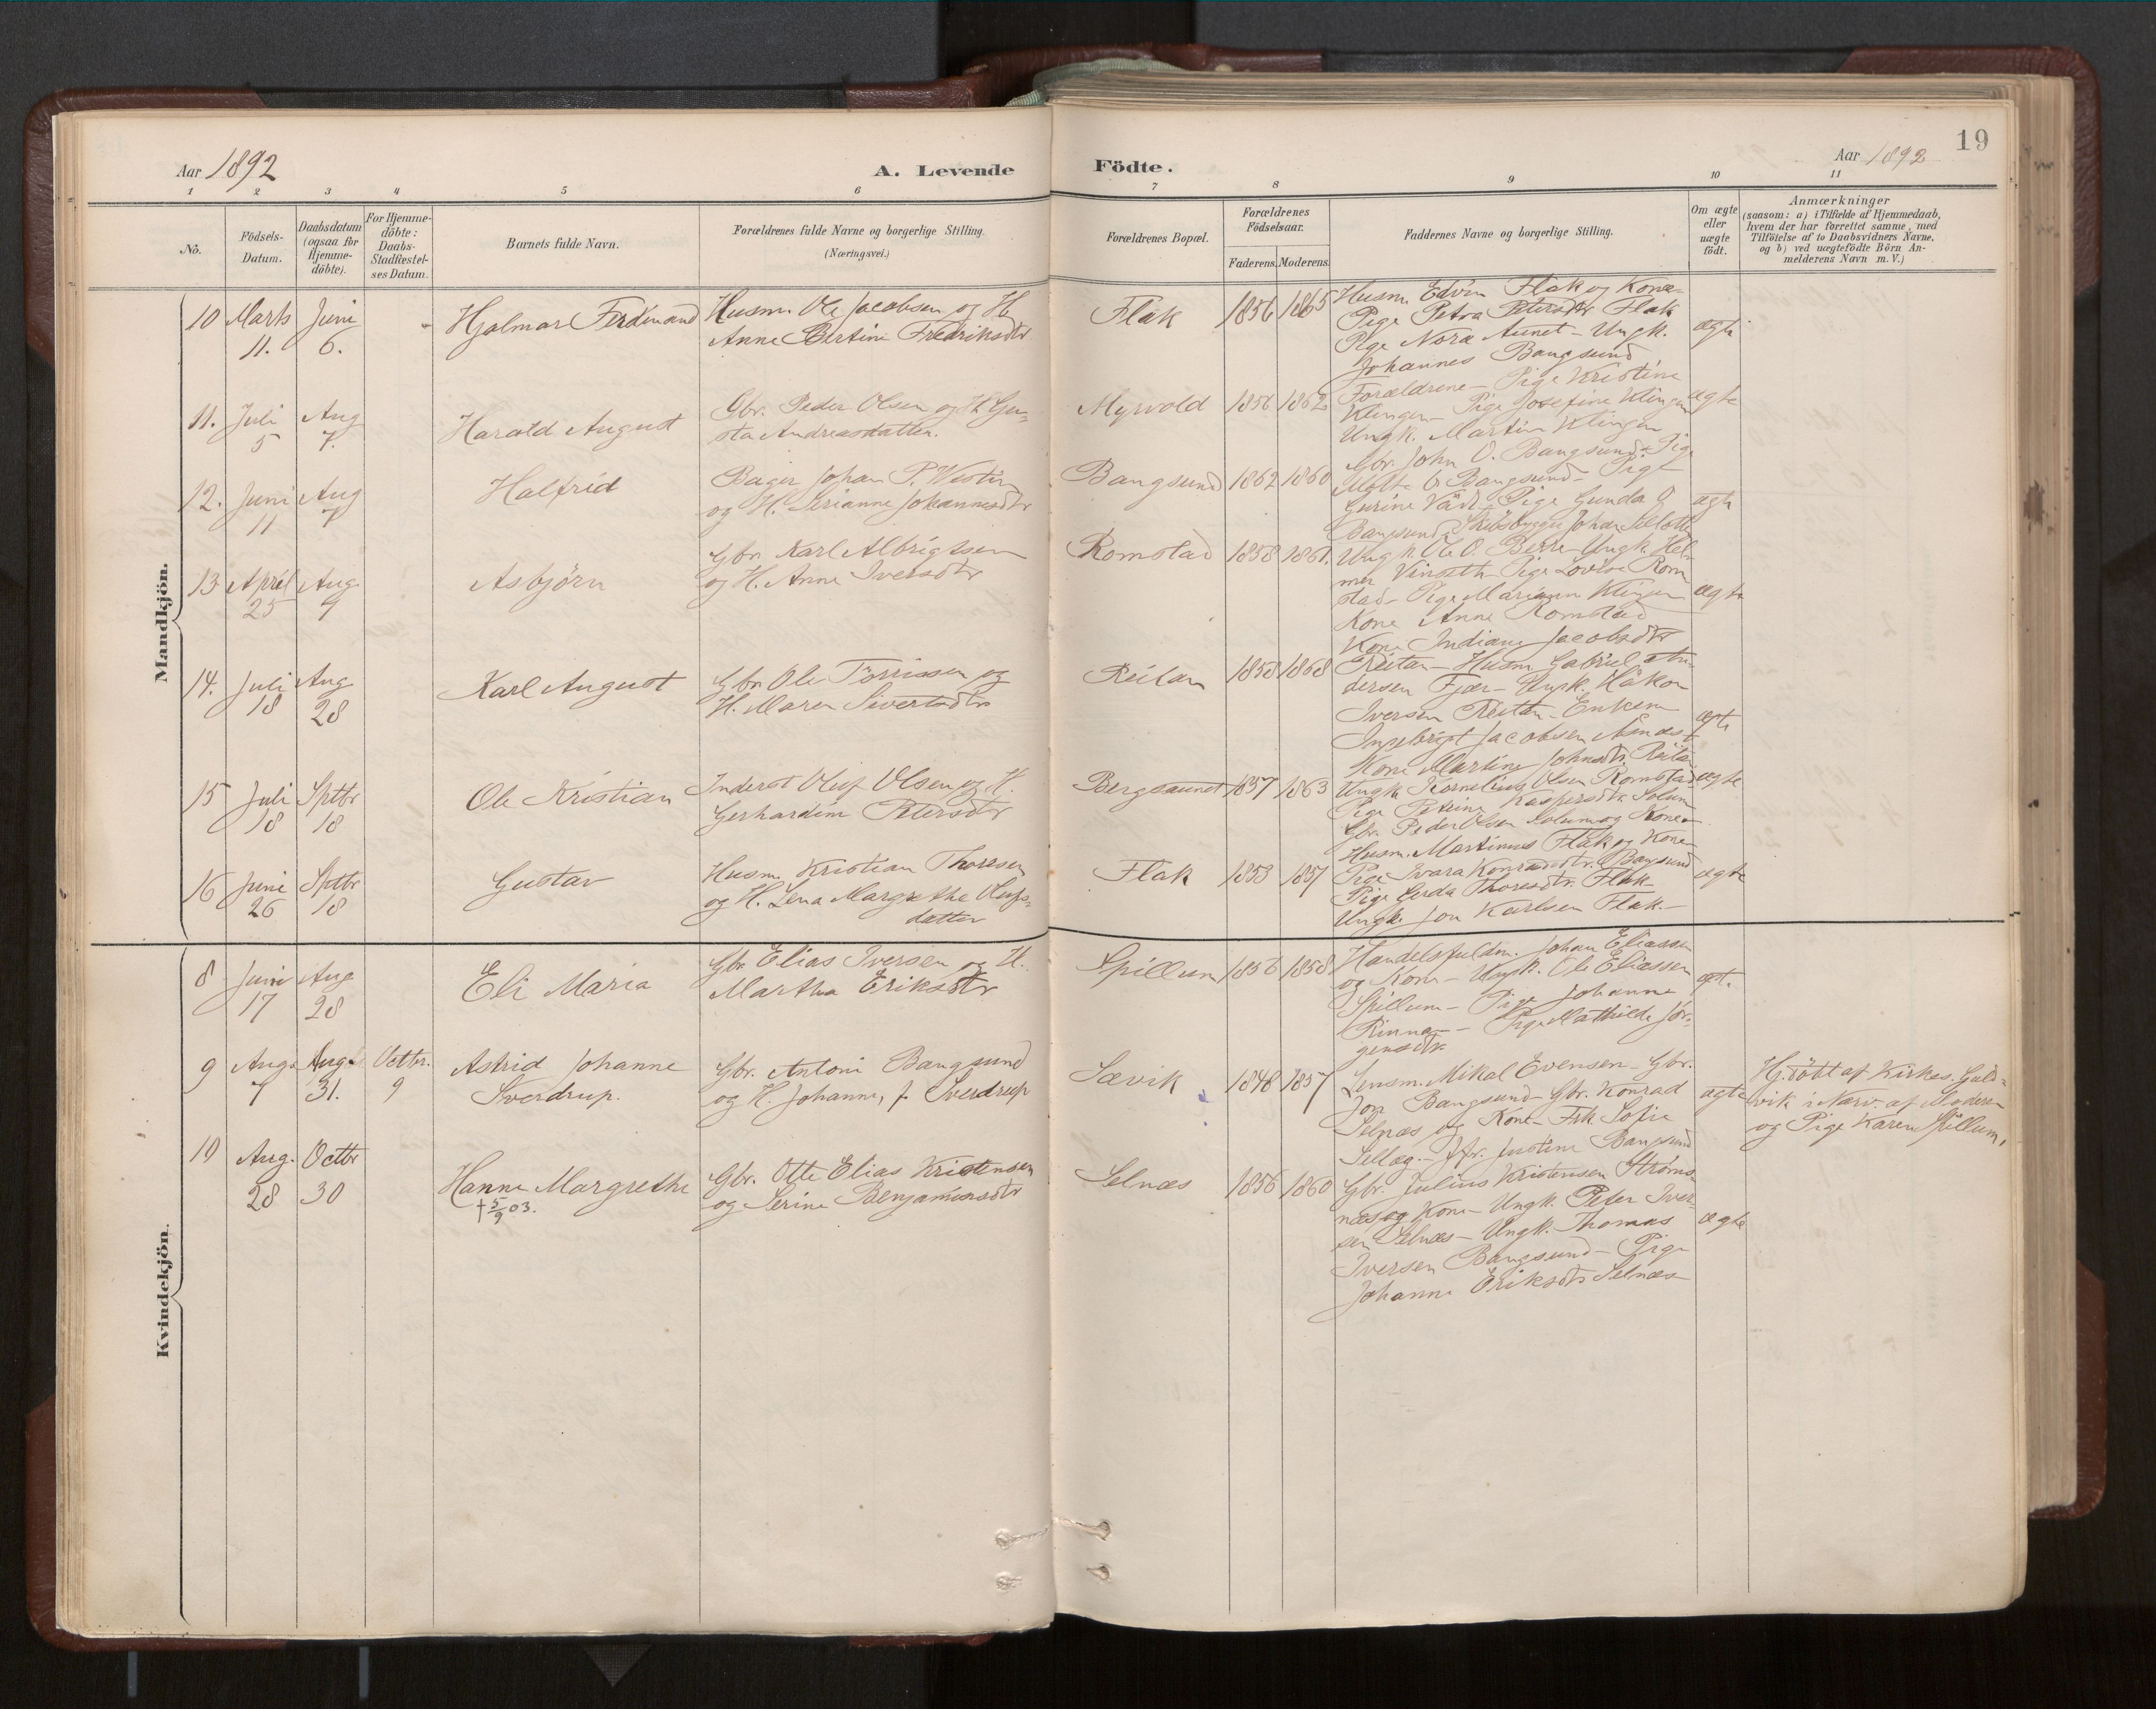 19
Aar 1892
A. Levende
Födte.
Aar 1892
1 2 3 4 5 6 7 8 9 10 11
No.
Födsels-
Datum.
Daabsdatum
(ogsaa for
Hjemme-
döbte).
For Hjemme-
döbte:
Daabs-
Stadfæstel-
ses Datum.
Barnets fulde Navn.
Forældrenes fulde Navne og borgerlige Stilling.
(Næringsvei.)
Forældrenes Bopæl.
Forældrenes
Födselsaar.
Faderens. Moderens.
Faddernes Navne og borgerlige Stilling.
Om ægte
eller
uægte
födt.
Anmærkninger
(saasom: a) i Tilfælde af Hjemmedaab,
hvem der har forrettet samme, med
Tilföielse af to Daabsvidners Navne,
og b) ved uægtefödte Börn An-
melderens Navn m. V.)
Mandkjön.
10 Marts 11. Juni 6.
Hjalmar Ferdinand
Husm. Ole Jacobsen og H.
Anne Bertine Fredriksdtr
Flak 1856 1865
Husm. Edvin Flak og Kone-
Pige Petra Petersdtr Flak
Pige Nora Aunet - Ungk.
Johannes Bangsund
ægte
11. Juli 5 Aug 7.
Harald August
Gbr. Peder Olsen og H. Gu-
sta Andreasdatter.
Myrvold 1856 1862
Forældrene - Pige Kristine
Klingen - Pige Josefine Klingen
Ungk. Martin Klingen
ægte
12. Juni 11 Aug 7
Halfrid
Bager Johan P. Westin
og H. Serianne Johannesdtr
Bangsund 1862 1860
Gbr. John O. Bangsund - Pige
Bangsund - Pige
Gurine - Pige Gunda O
Bangsund - Skibsbygger Johan
ægte
13 April 25 Aug 9
Asbjörn
Gbr. Karl Albrigtsen
og H. Anne Iversdtr
Romstad 1858 1861.
Ungk. Ole O. Berre - Ungk. Hel-
mer - Pige Lovise Rom
stad - Pige Mariann Klingen
Kone Anne Romstad
ægte
14. Juli 18 Aug 28
Karl August
Gbr. Ole Torrissen og
H. Maren Sivertsdtr
Reitan 1858 1868
Kone Indiane Jacobsdtr
Reitan - Husm. Gabriel An-
dersen Fjær - Ungk. Håkon
Iversen Reitan - Enkem.
Ingebrigt Jacobsen
Kone Martine Johnsdtr. Reitan
ægte
15 Juli 18 Sptbr 18
Ole Kristian
Inderst Oluf Olsen og H.
Gerhardine Petersdtr
Bergsaunet 1857 1863
Ungk. Kornelius Olsen Romstad
Pige Petrine Kaspersdtr. Solum
Gbr. Peder Olsen Solum og Kone
ægte
16 Juni 26 Sptbr 18
Gustav
Husm. Kristian Thoresen
og H. Lena Margrethe Olufs-
datter
Flak 1853 1857
Husm. Martinus Flak og Kone
Pige Ivara Konradsdtr. Bangsund
Pige Gerda Thoresdtr. Flak -
Ungk. Jon Karlsen Flak -
ægte
Kvindekjön.
8 Juni 17 Aug 28
Eli Maria
Gbr Elias Iversen og H.
Martha Eriksdtr
Spillum 1856 1858
Handelsfuldm. Johan Eliassen
og Kone - Ungk. Ole Eliassen
Spillum - Pige Johanne
Pige Mathilde Jör-
gensdtr
ægte
9 Aug. 7 Aug. 31. Octbr. 9
Astrid Johanne
Sverdrup.
Gbr. Antoni Bangsund
og H. Johanne, f. Sverdrup
Sævik 1848 1857
Lensm. Mikal Evensen - Gbr.
Jon Bangsund - Gbr. Konrad
Selnæs og Kone - Frk. Sofie
Sellæg. - Jfr. Justine Bangsund
ægte
Hj. döbt af Kirkes. Guld-
vik i Nærv. af Moderen
og Pige Karen Spillum,
10 Aug. 28 Octbr 30
Hanne Margrethe
† 5/9 03.
Gbr. Otte Elias Kristensen
og Serine Benjaminsdtr
Selnæs 1856 1860
Gbr. Julius Kristensen Ströms-
næs og Kone - Ungk. Peter Iver-
sen Selnæs - Ungk. Thomas
Iversen Bangsund - Pige
Johanne Eriksdtr Selnæs
ægte